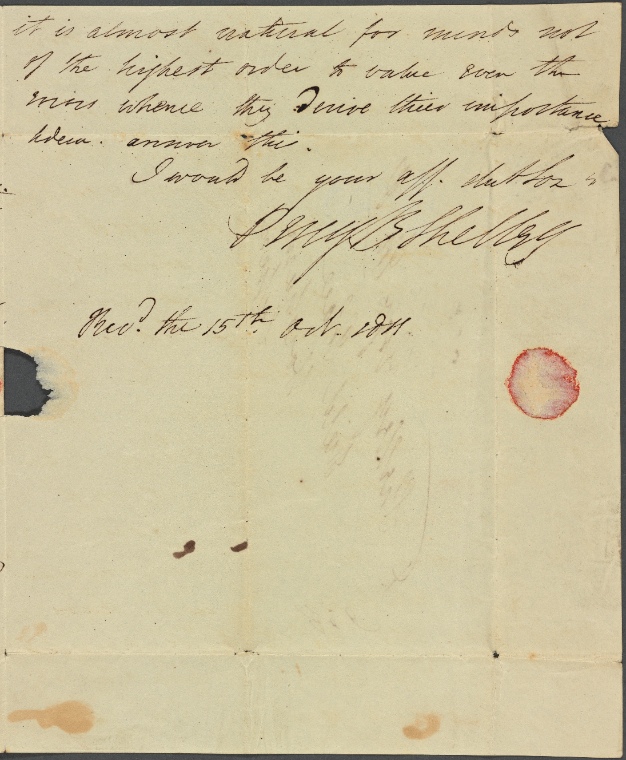 it is almost natural for minds not
of the highest order to value even the
errors whence they derive their importance
Adeiu. answer this.
I would be your aff. dut Son
Percy B Shelley
Rec.d the 15th. Oct. 1811.